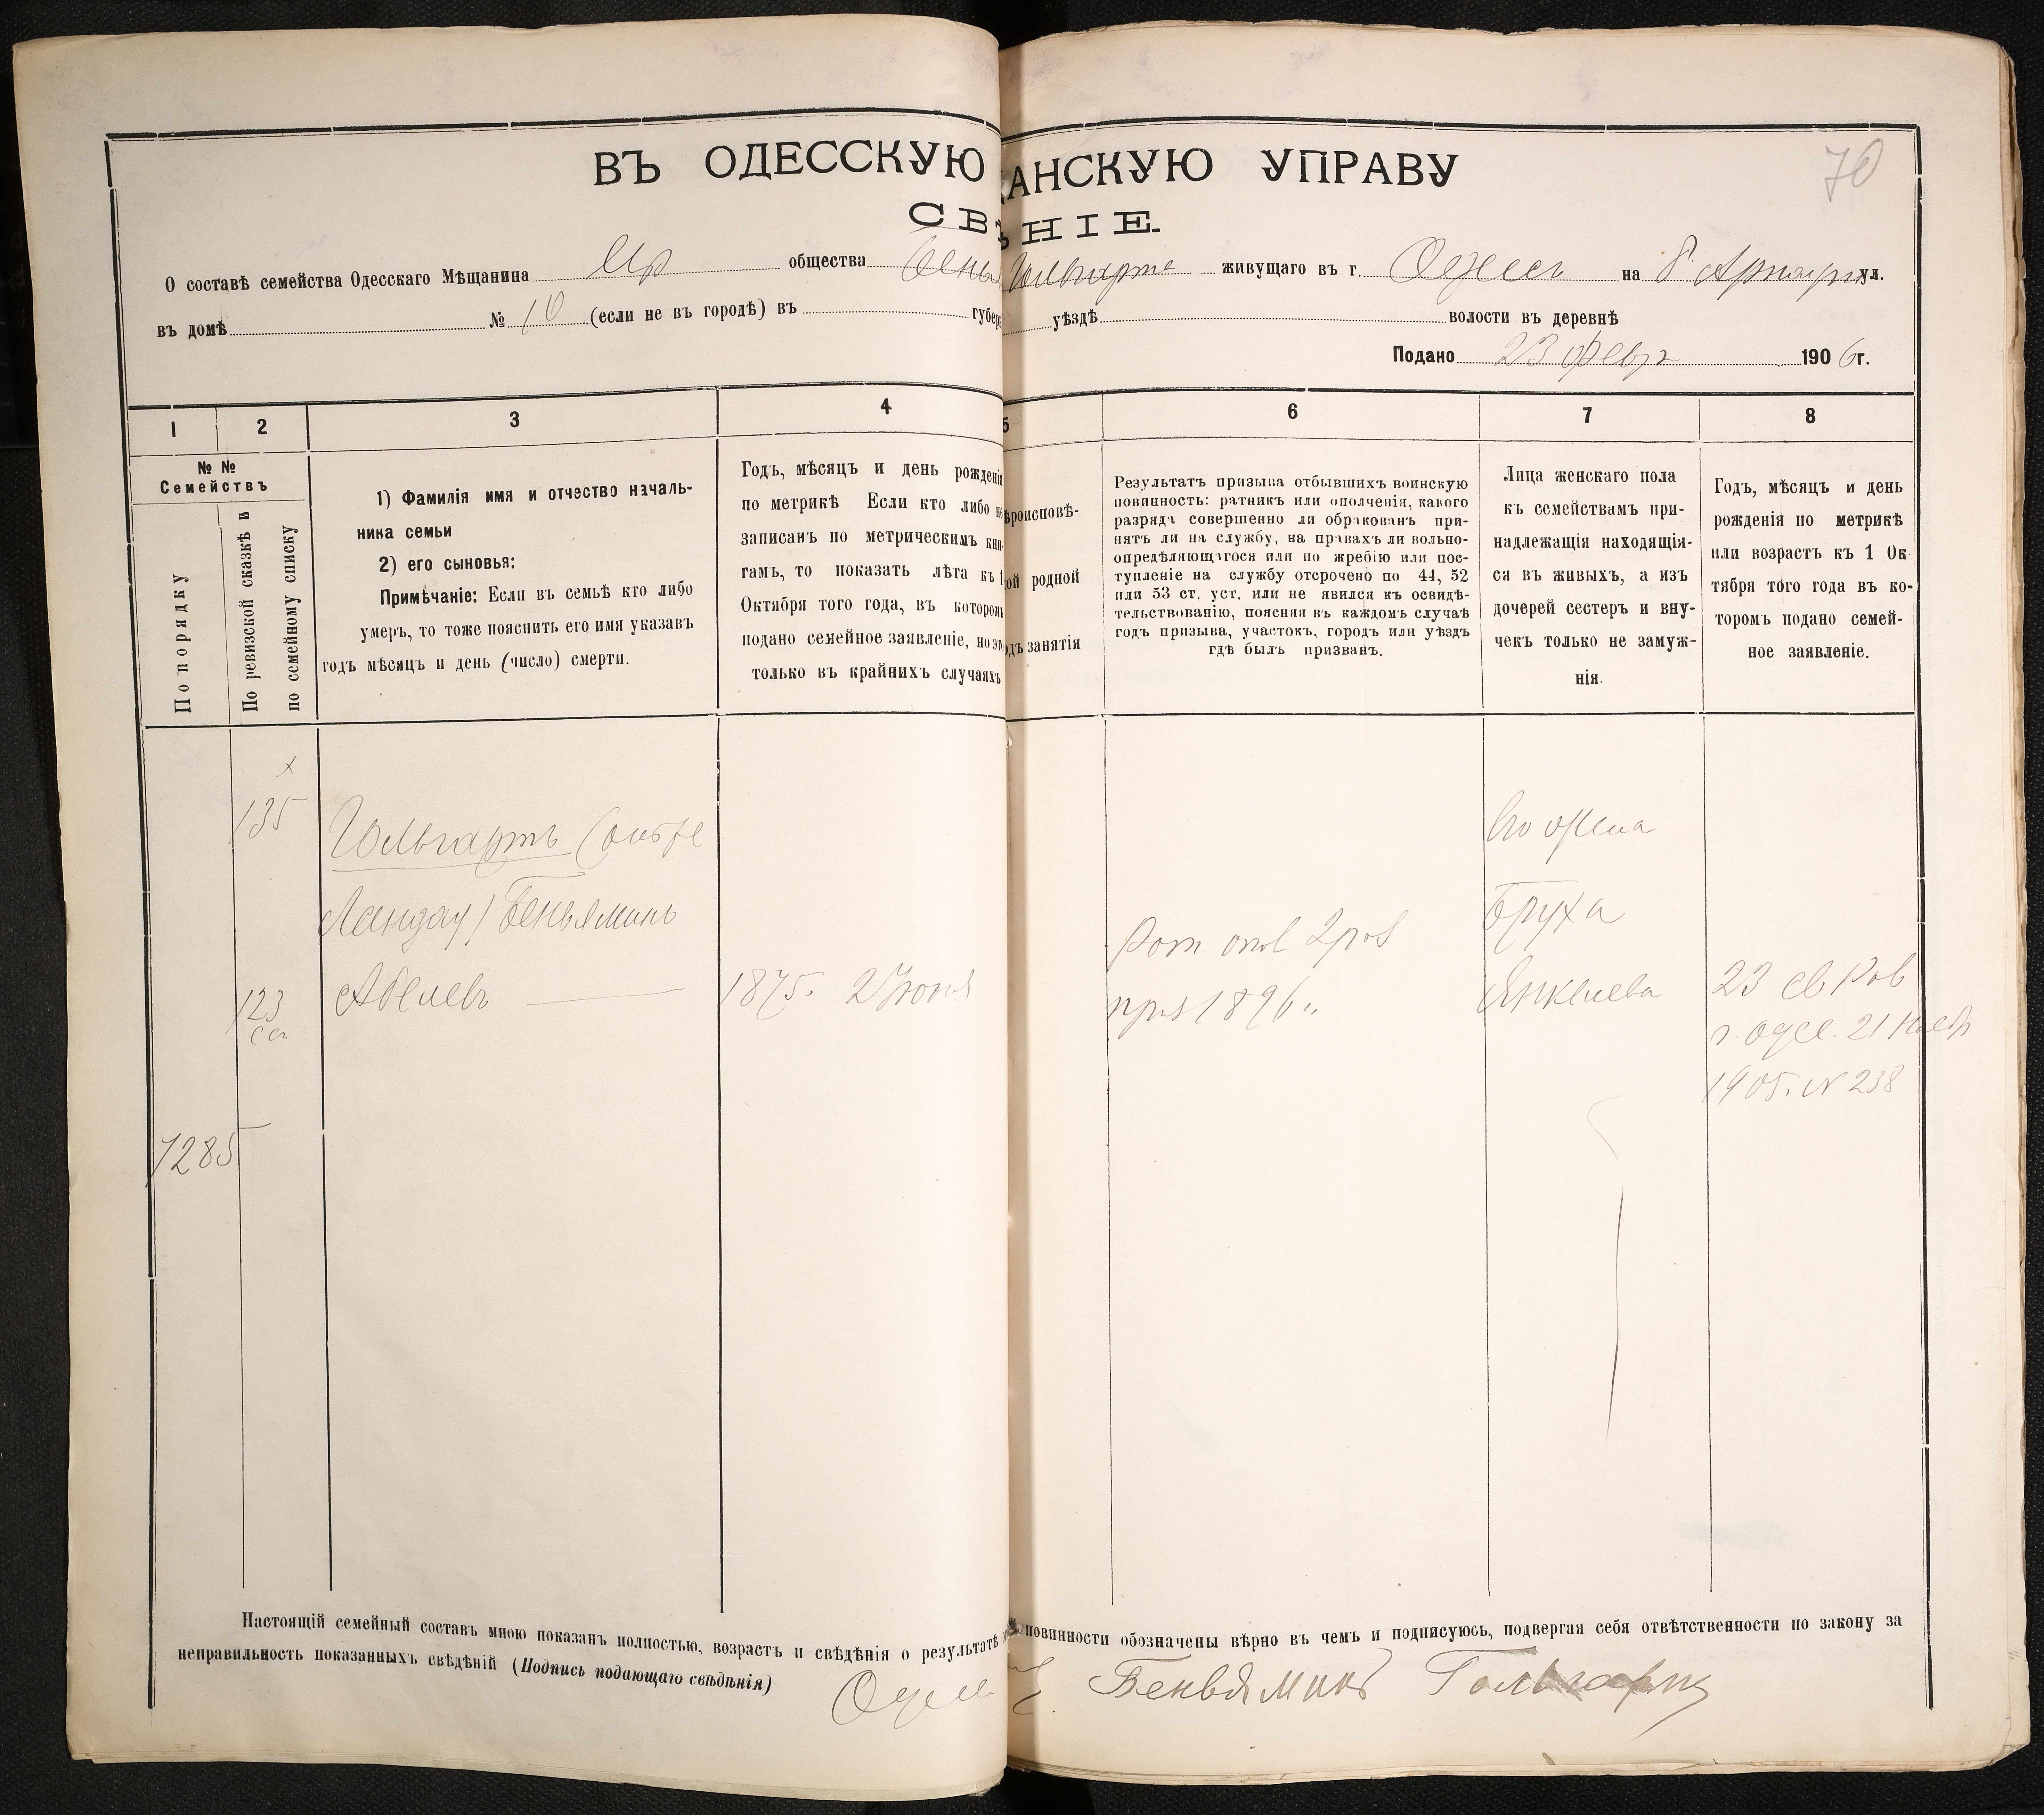 70
ВЪ ОДЕССКУЮ АНСКУЮ УПРАВУ
СВ НІЕ.
О составѣ семейства Одесскаго Мѣщанина Евр общества Гольгарта живущаго въ г. Одессѣ на ул.
въ домѣ № 10 (если не въ городѣ) въ губер уѣздѣ волости въ деревнѣ
Подано 23 Февр 1906 г.
1 2 3 4 5 6 7 8
№ №
Семействъ
По порядку
По ревизской сказкѣ и
по семейному списку
1) Фамилія имя и отчество началь-
ника семьи
2) его сыновья:
Примѣчаніе: Если въ семьѣ кто либо
умеръ, то тоже пояснить его имя указавъ
годъ мѣсяцъ и день (число) смерти.
Годъ, мѣсяцъ и день рожденія
по метрикѣ Если кто либо не
записанъ по метрическимъ кни-
гамъ, то показать лѣта къ 1
Октября того года, въ которомъ
подано семейное заявленіе, но это
только въ крайнихъ случаяхъ
ѣроисповѣ-
ой родной
одъ занятія
Результатъ призыва отбывшихъ воинскую
повинность: ратникъ или ополченія, какого
разряда совершенно ли обракованъ при-
нятъ ли на службу, на правахъ ли вольно-
опредѣляющагося или по жребію или пос-
тупленіе на службу отсрочено по 44, 52
или 53 ст. уст. или не явился къ освидѣ-
тельствованію, поясняя въ каждомъ случаѣ
годъ призыва, участокъ, городъ или уѣздъ
гдѣ былъ призванъ.
Лица женскаго пола
къ семействамъ при-
надлежащія находящія-
ся въ живыхъ, а изъ
дочерей сестеръ и вну-
чекъ только не замуж-
нія.
Годъ, мѣсяцъ и день
рожденія по метрикѣ
или возрастъ къ 1 Ок-
тября того года въ ко-
торомъ подано семей-
ное заявленіе.
х
135
Гольгартъ (онъ же
Ландау) Беньяминъ
Абелевъ
123
1875. 2 Іюня
Рат. опол 2 раз
приз 1896 г.
Его жена
Бруха
Янкелева
23 св Рав
г. Одес. 21 Нояб
1905. № 238
1285
Настоящій семейный составъ мною показанъ полностью, возрастъ и свѣдѣнія о результатѣ повинности обозначены вѣрно въ чемъ и подписуюсь, подвергая себя отвѣтственности по закону за
неправильность показанныхъ свѣдѣній (Подпись подающаго свѣдѣнія)
Беньяминъ Гольгартъ